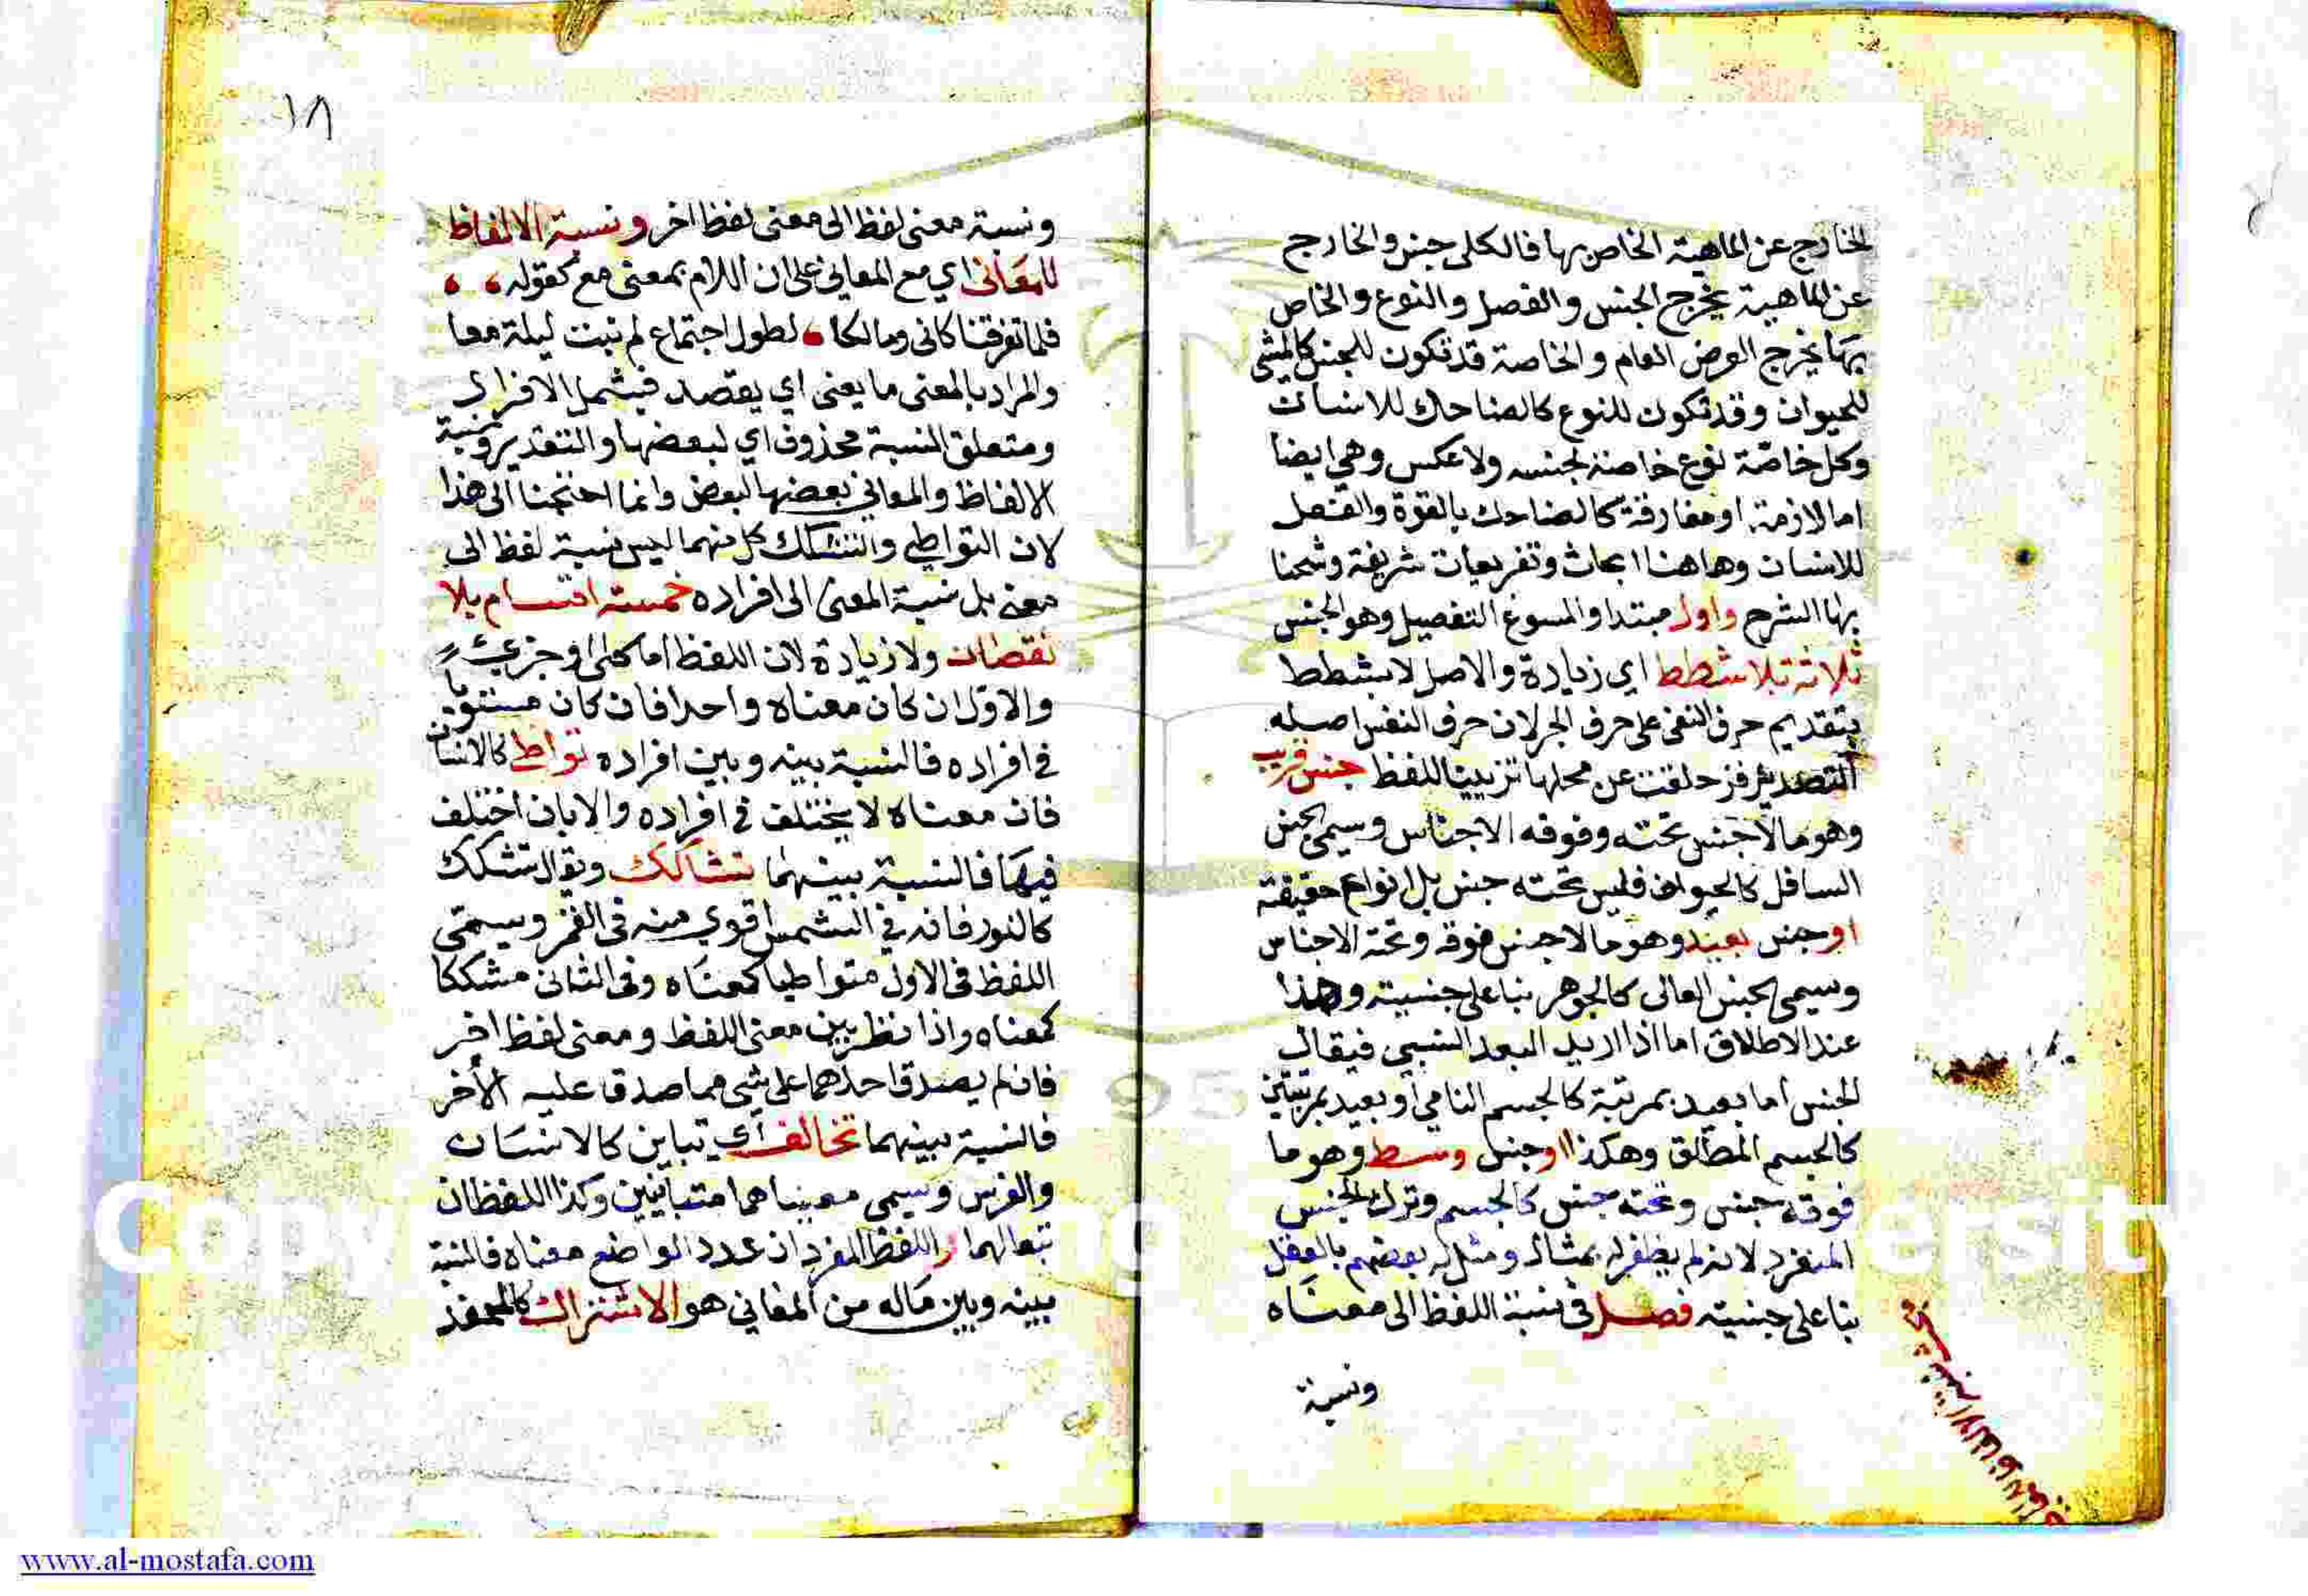 الخارج عن الماهية الخاص بها فالكلى جنس والخارج
عن الماهية يخرج الجنس والفصل والنوع والخاص
بها يخرج العرض العام والخاصة قد تكون للجنس كالمشى
للحيوان وقد تكون للنوع كالضاحك للانسان
وكل خاصة نوع خاصة لجنسه ولا عكس وهي ايضا
اما لازمة او مفارقة كالضاحك بالقوة والفعل
للانسان وهاهنا ابحاث وتفريعات شريفة وشحنا
بها الشرح واول مبتدا والمسوغ التفصيل وهو الجنس
ثلاثة بلا شطط اي زيادة والاصل لا بشطط
بتقديم حرف النفى على حرف الجر لان حرف النفى اصله
التصدير فزحلقت عن محلها تزيينا للفظ جنس قريب
وهو ما لا جنس تحته وفوقه الاجناس وسمى بجنس
السافل كالحيوان فليس تحته جنس بل انواع حقيقة
او جنس بعيد وهو ما لا جنس فوقه وتحته الاجناس
وسمى بجنس العالى كالجوهر بنا على جنسيته وهذا
عند الاطلاق اما اذا اريد البعد النسبي فيقال
الجنس اما بعيد بمرتبة كالجسم النامي او بعيد بمرتبتين
كالجسم المطلق وهكذا او جنس وسط وهو ما
فوقه جنس وتحته جنس كالجسم وترك الجنس
المنفرد لانه لم يظفر له بمثال ومثل له بعضهم بالعقل
بنا على جنسيته فصل فى نسبة اللفظ الى معناه
ونسبة
١٨
ونسبة معنى لفظ الى معنى لفظ اخر ونسبة الالفاظ
للمعانى اي مع المعاني على ان اللام بمعنى مع كقوله
فلما تفرقنا كانى ومالكا لطول اجتماع لم نبت ليلة معا
والمراد بالمعنى ما يعنى اي يقصد فيشمل الافراد
ومتعلق النسبة محذوف اي لبعضها والتقدير ونسبة
الالفاظ والمعاني بعضها لبعض وانما احتجنا الى هذا
لان التواطي والتشكك كل منهما ليس نسبة لفظ الى
معنى بل نسبة المعنى الى افراده خمسة اقسام بلا
نقصان ولا زيادة لان اللفظ اما كلى او جزءي
والاول ان كان معناه واحدا فان كان مستويا
في افراده فالنسبة بينه وبين افراده تواطي كالانسان
فان معناه لا يختلف في افراده والا بان اختلف
فيها فالنسبة بينهما تشاكك ويقال تشكك
كالنور فانه في الشمس اقوي منه فى القمر وسمى
اللفظ فى الاول متواطيا كمعناه وفى الثانى مشككا
كمعناه واذا نظر بين معنى اللفظ ومعنى لفظ اخر
فان لم يصدق احدهما على شي مما صدق عليه الأخر
فالنسبة بينهما تخالف اي تباين كالانسان
والفرس وسمى معنياهما متباينين وكذا اللفظان
تبعا لهما واللفظ المفرد ان عدد الواضع معناه فالنسبة
بينه وبين ماله من المعاني هو الاشتراك
Copyright University
www.al-mostafa.com